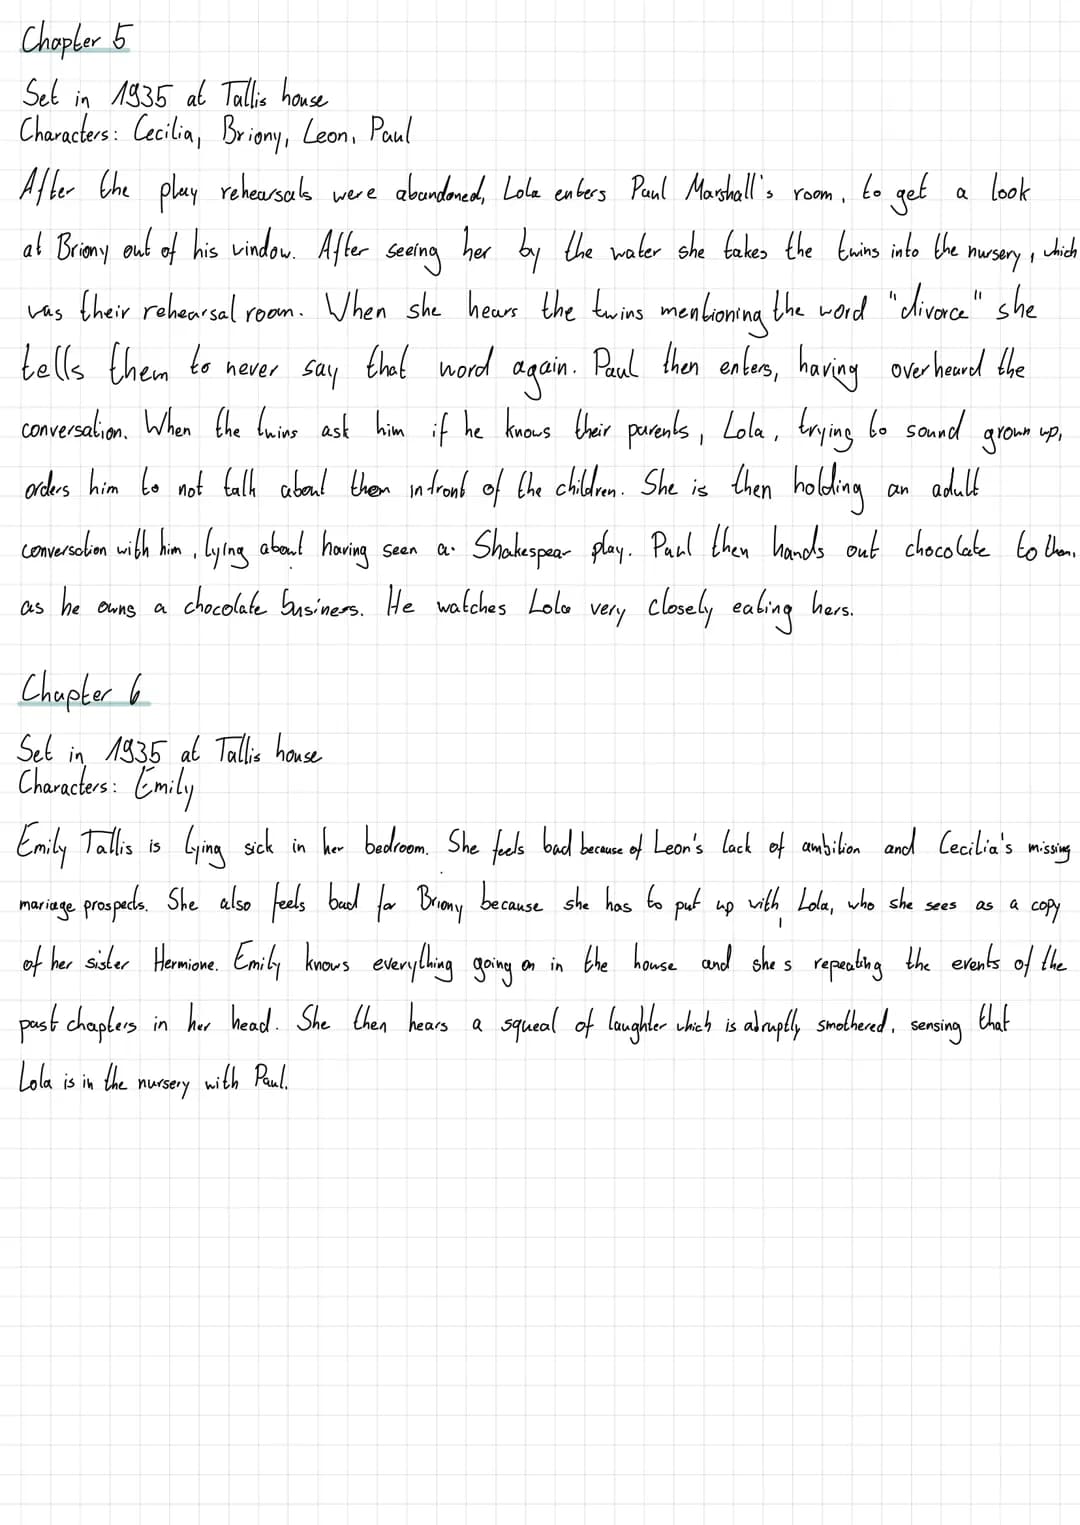 Chapter 5
Set in 1935 at Tallis house
Characters: Cecilia, Briony, Leon, Paul
After the play rehearsals were abandoned, Lola enters Paul Marshall's room, to get a look
at Briony out of his window. After seeing her by the water she takes the twins into the nursery, which
was their rehearsal room. When she hears the twins mentioning the word "divorce" she
tells them to never say that word again. Paul then enters, having overheard the
conversation. When the twins ask him if he knows their parents, Lola, trying to sound grown up,
orders him to not talk about them infront of the children. She is then holding an adult
conversation with him, lying about having seen a Shakespear play. Paul then hands out chocolate to them,
as he owns a chocolate business. He watches Lola very closely eating hers.
Chapter 6
Set in 1935 at Tallis house
Characters: Emily
Emily Tallis is lying sick in her bedroom. She feels bad because of Leon's lack of ambition and Cecilia's missing
mariage prospects. She also feels bad for Briony because she has to put up with Lola, who she sees as a copy
of her sister Hermione. Emily knows everything going on in the house and she s repeating the events of the
past chapters in her head. She then hears a squeal of laughter which is abruptly smothered, sensing that
Lola is in the nursery with Paul.